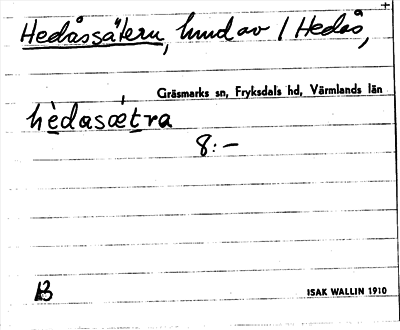 +
Hedåssätern, hmd av 1 Hedås,
Gräsmarks sn, Fryksdals hd, Värmlands län
hèdasǽtra
8:-
B
ISAK WALLIN 1910